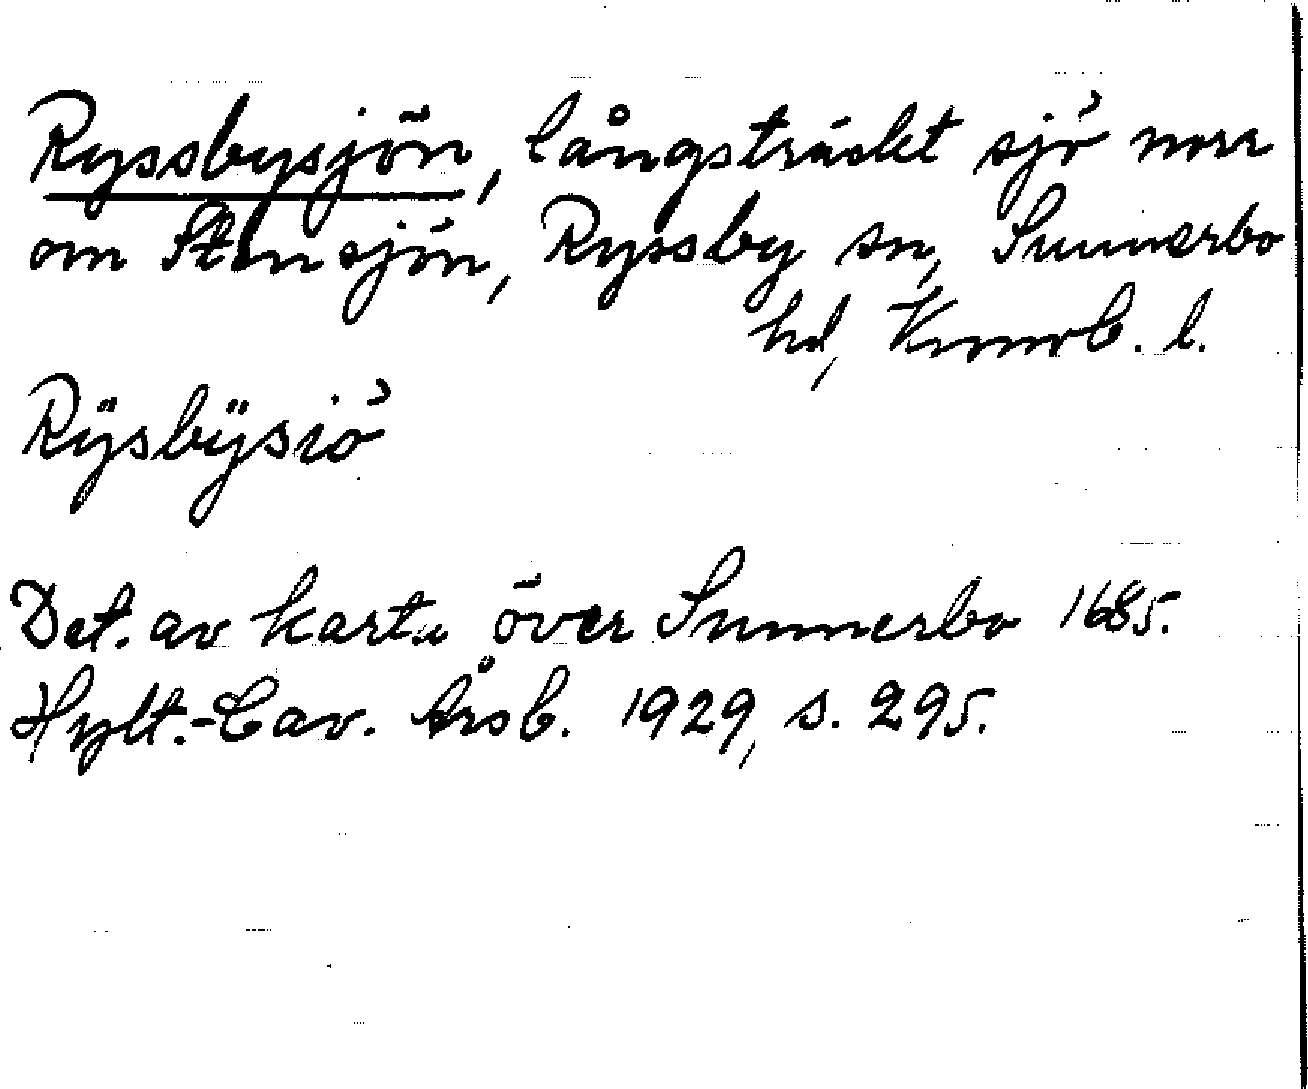 Ryssbysjön, långsträckt sjö norr
om Stensjön, Ryssby sn, Sunnerbo
hd, Kronob. l.
Rÿsbÿsiö
Det. av karta över Sunnerbo 1685.
Hylt.-Cav. Årsb. 1929, s. 295.